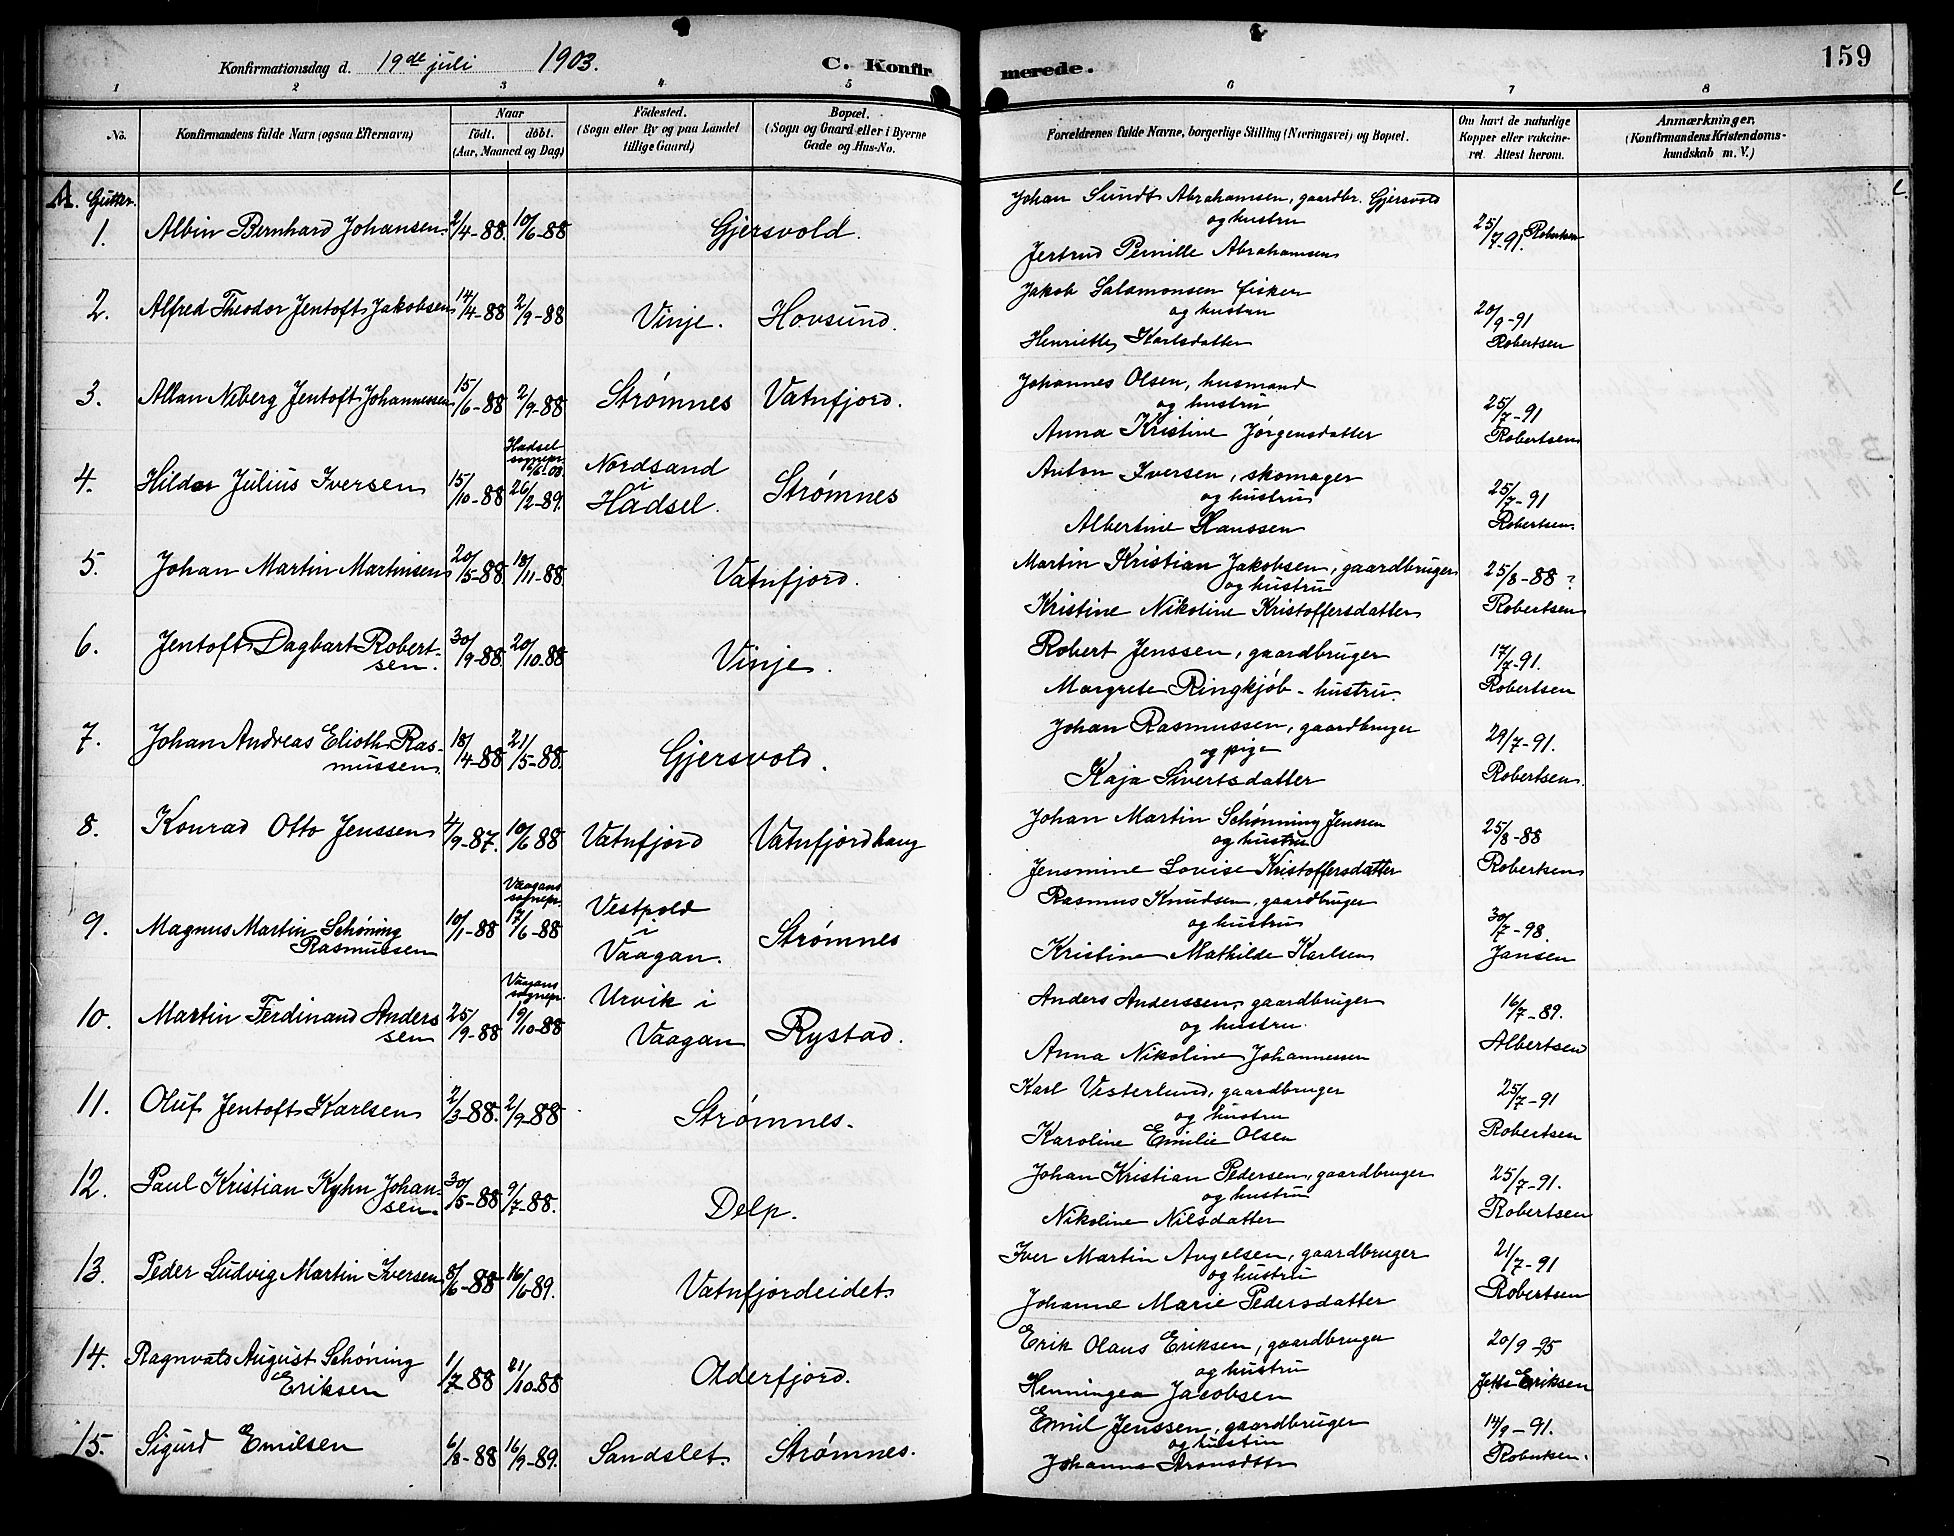 Konfirmationsdag d. 19de juli 1903. C. Konfirmerede. 159
1 2 3 4 5 6 7 8
No. Konfirmandens fulde Navn (ogsaa Efternavn) Naar födt. döbt. (Aar, Maaned og Dag) Födested. (Sogn eller By og paa Landet tillige Gaard) Bopæl. (Sogn og Gaard eller i Byerne Gade og Hus-No. Forældrenes fulde Navne, borgerlige Stilling (Næringsvei) og Bopæl. Om havt de naturlige Kopper eller vakcineret. Attest herom. Anmærkninger. (Konfirmandens Kristendomskundskab m. V.)
A. Gutter.
1. Albin Bernhard Johansen 2/4-88. 10/6-88 Gjersvold. Johan Sundt Abrahamsen, gaardbr. Gjersvold
og hustru
Jertrud Pernille Abrahamsen 25/7-91. Robertsen
2. Alfred Theodor Jentoft Jakobsen 14/4-88 2/9-88 Vinje. Hovsund. Jakob Salamonsen fisker
og hustru
Henriette Karlsdatter 20/9-91 Robertsen
3. Allan Neberg Jentoft Johannessen 15/6-88 2/9-88 Strømnes Vatnfjord. Johannes Olsen, husmand
og hustru
Anna Kristine Jørgensdatter 25/7-91 Robertsen
4. Hildor Julius Iversen 15/10-88 Hadsel sognepr. 16/6.03. 26/2-89. Nordsand i Hadsel. Strømnes Anton Iversen, skomager
og hustru
Albertine Hanssen 25/7-91 Robertsen.
5. Johan Martin Martinsen 20/5-88 18/11-88 Vatnfjord. Martin Kristian Jakobsen, gaardbruger
og hustru
Kristine Nikoline Kristoffersdatter 25/8-88 ? Robertsen
6. Jentoft Dagbart Robertsen. 30/9-88 20/10.88 Vinje. Robert Jenssen, gaardbruger
Margrete Ringkjøb - hustru. 17/7-91. Robertsen
7. Johan Andreas Elioth Rasmussen. 18/4-88 21/5-88. Gjersvold. Johan Rasmussen, gaardbruger
og pige
Kaja Sivertsdatter 29/7-91. Robertsen.
8. Konrad Otto Jenssen 4/9-87. 10/6 88 Vatnfjord Vatnfjordhaug Johan Martin Schønning Jenssen
og hustru
Jensmine Lovise Kristoffersdatter 25/8-88 Robertsen
9. Magnus Martin Schøning Rasmussen 10/1-88 Vaagans sognepr. 17/6-88 Vestpold i Vaagan. Strømnes Rasmus Knudsen, gaardbruger
og hustru
Kristine Mathilde Karlsen 30/7-98. Jansen
10. Martin Ferdinand Anderssen 25/9-88 Vaagans sognepr. 19/10-88 Urvik i Vaagan Rystad. Anders Anderssen, gaardbruger
og hustru.
Anna Nikoline Johannessen 16/7-89. Albertsen
11. Oluf Jentoft Karlsen 2/3-88. 2/9-88 Strømnes. Karl Vesterlund, gaardbruger
og hustru
Karoline Emilie Olsen 25/7-91 Robertsen
12. Paul Kristian Kyhn Johansen. 30/5-88 9/7-88. Delp. Johan Kristian Pedersen, gaardbruger
og hustru
Nikoline Nilsdatter 25/7-91. Robertsen
13. Peder Ludvig Martin Iversen 8/6-88 16/6-89. Vatnfjordeidet. Iver Martin Angelsen, gaardbruger
og hustru
Johanne Marie Pedersdatter 21/7-91 Robertsen
14. Ragnvald August Schöning Eriksen 1/7-88 21/10-88 Olderfjord. Erik Olaus Eriksen, gaardbruger
og hustru
Henningea Jacobsen 20/9-95 Eriksen
15. Sigurd Emilsen 6/8-88 16/9-89. Sandslet. Strømnes. Emil Jenssen, gaardbruger
og hustru
Johanna Aronsdttr 14/9-91. Robertsen.